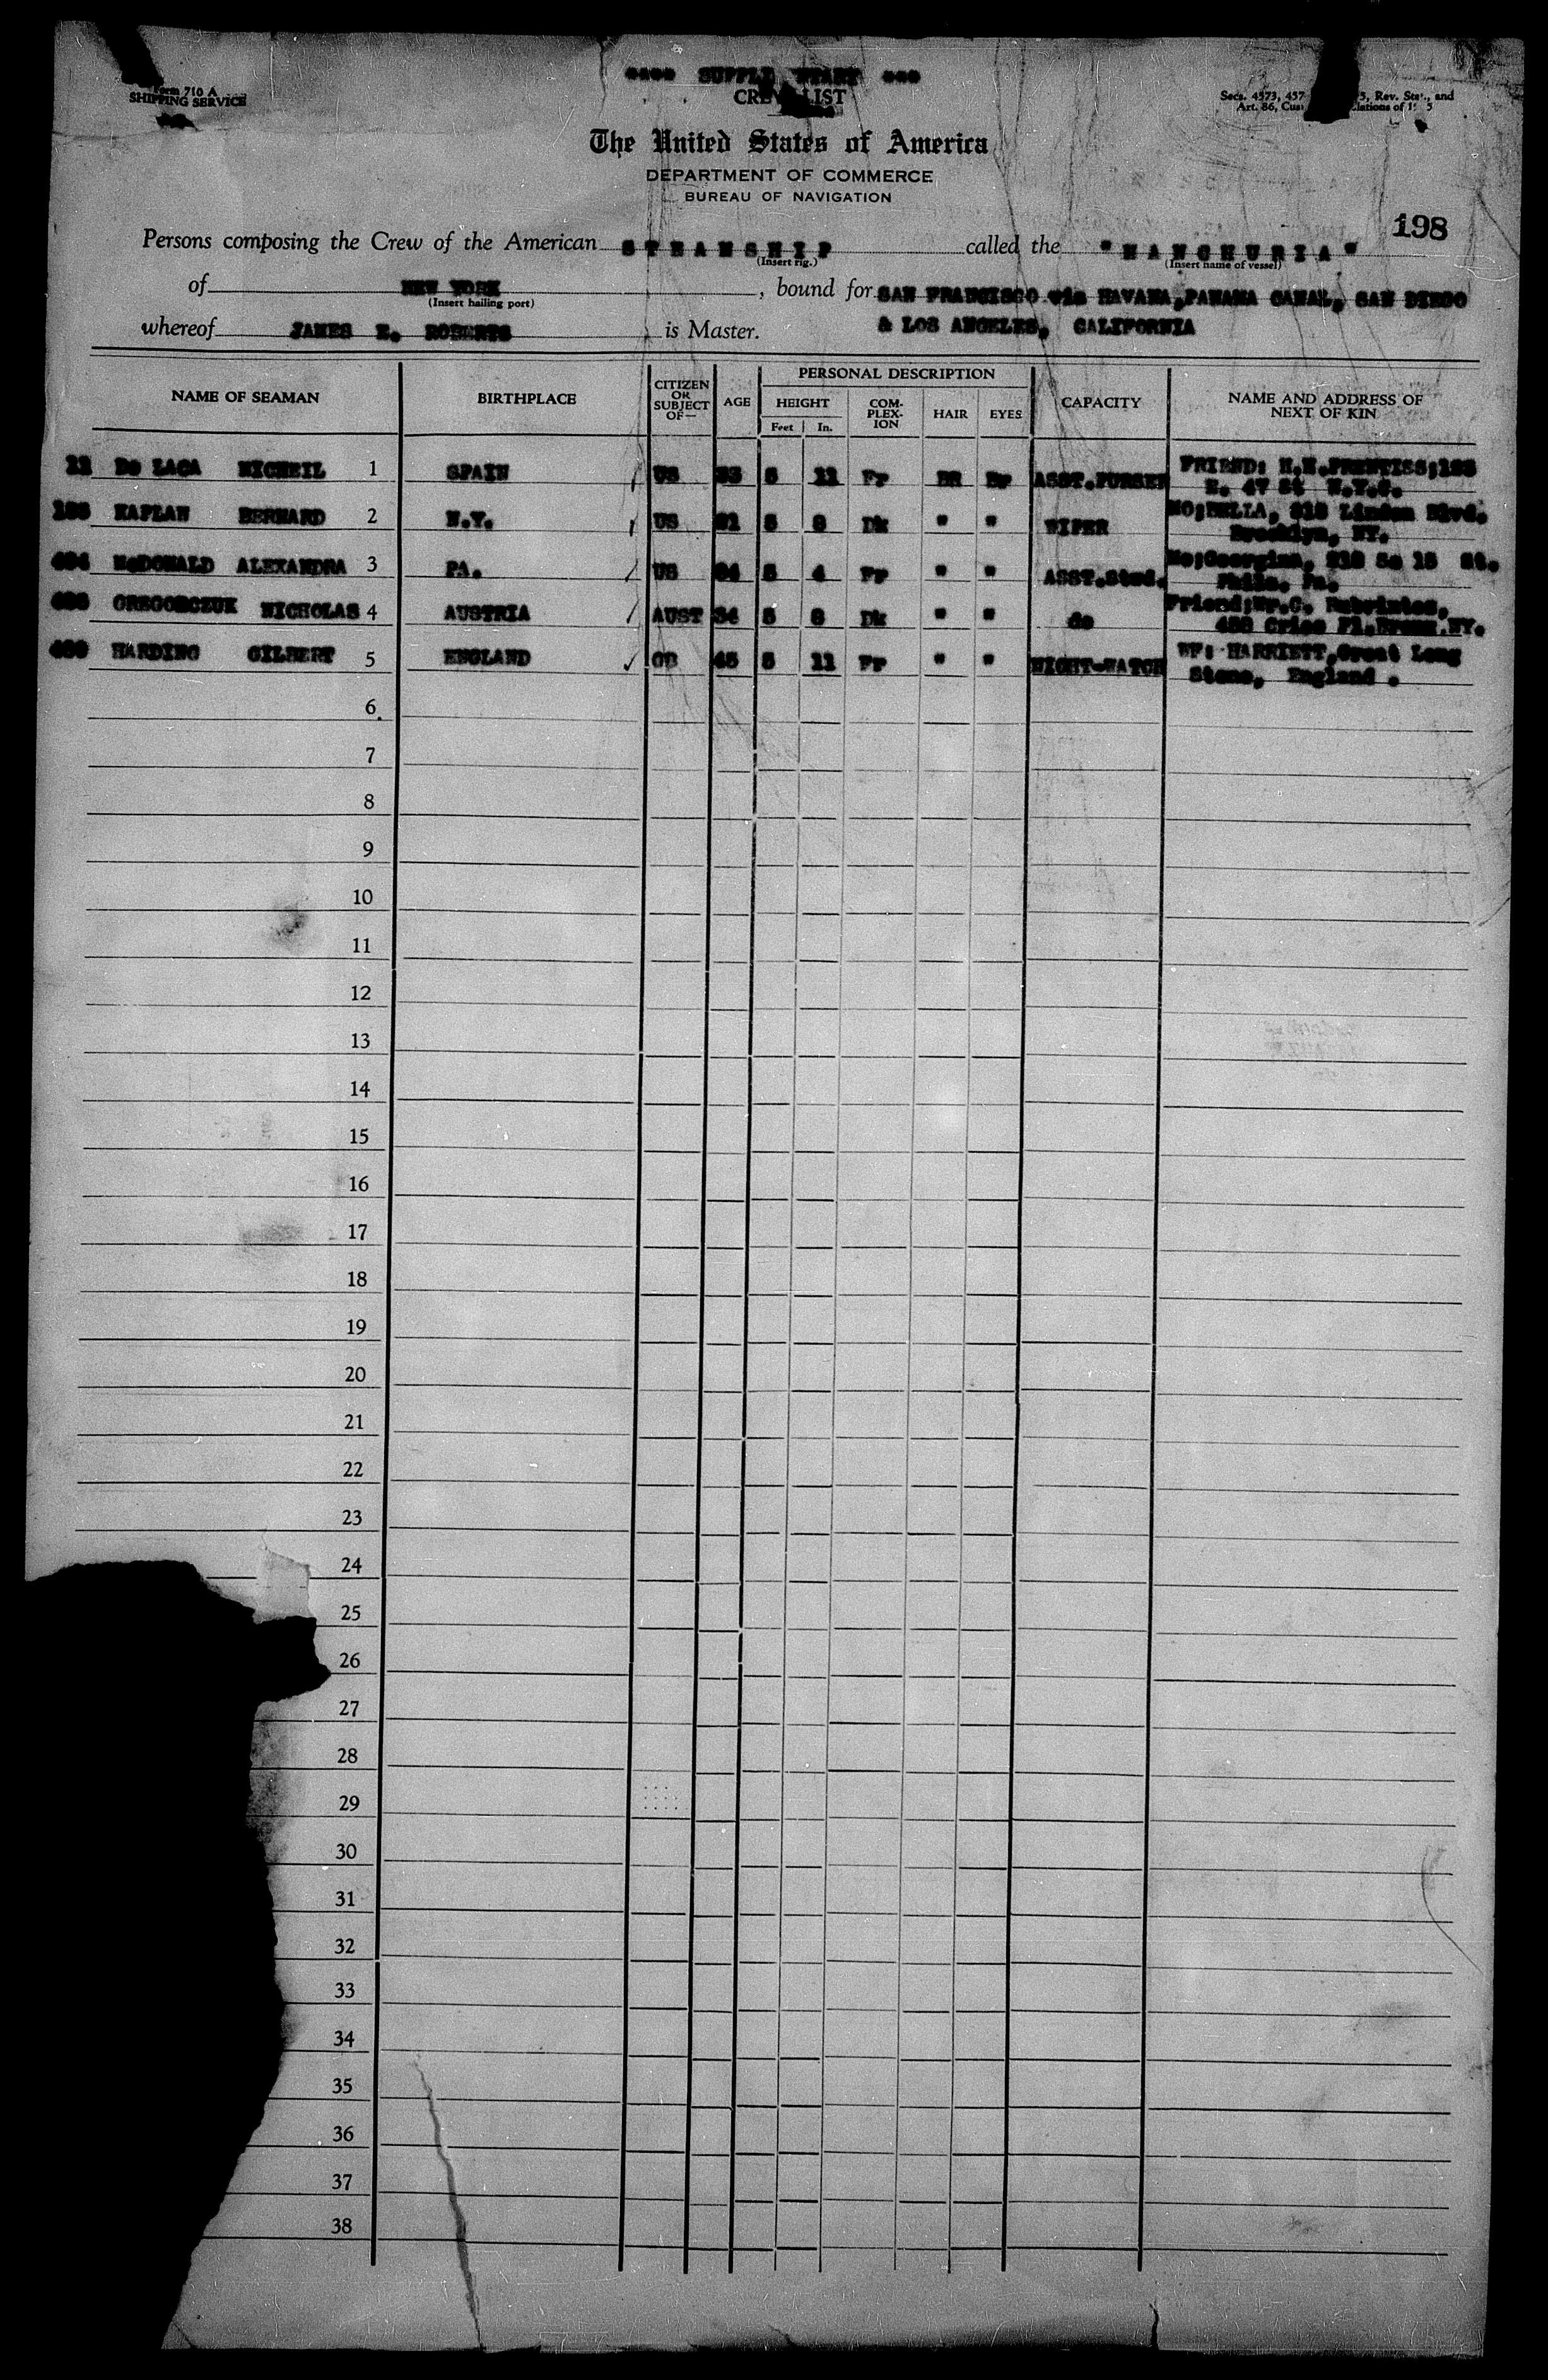 Form 710 A
SHIPPING SERVICE
CREW LIST
Secs. 4573, 457 5, Rev. Stat., and
Art. 86, Cus lations of 1 5
The United States of America
DEPARTMENT OF COMMERCE
BUREAU OF NAVIGATION
198
Persons composing the Crew of the American STEAMSHIP called the "MANCHURIA"
(Insert rig.) (Insert name of vessel)
of NEW YORK, bound for SAN FRANCISCO via HAVANA, PANAMA CANAL, SAN DIEGO
(Insert hailing port)
whereof JAMES E. ROBERTS is Master. & LOS ANGELES, CALIFORNIA
NAME OF SEAMAN BIRTHPLACE CITIZEN OR SUBJECT OF— AGE PERSONAL DESCRIPTION CAPACITY NAME AND ADDRESS OF NEXT OF KIN
HEIGHT COMPLEXION HAIR EYES
Feet In.
11 De LACA MICHEIL 1 SPAIN US 33 5 11 Fr BR Br ASST.PURSER FRIEND: PRENTISS;
E. 47 St N.Y.C.
KAPLAN BERNARD 2 N.Y. US 21 5 8 Dk " " WIPER MO;BELLA, Linden Blvd.
Brooklyn, NY.
McDONALD ALEXANDRA 3 PA. US 5 4 Fr " " ASST.Stwd. Mo;Georgina, So 15 St.
Phila. Pa.
GREGORCZUK NICHOLAS 4 AUSTRIA AUST 34 5 8 Dk " " do Friend;Mr.C.
Pl.Bronx.NY.
HARDING GILBERT 5 ENGLAND GB 45 5 11 Fr " " NIGHT-WATCH WF: HARRIETT,Great Long
Stone, England .
6
7
8
9
10
11
12
13
14
15
16
17
18
19
20
21
22
23
24
25
26
27
28
29
30
31
32
33
34
35
36
37
38